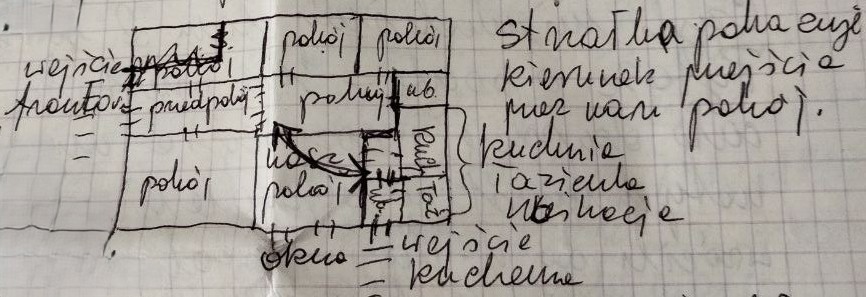 pokój pokój
wejście pokój
frontowe przedpokój pokój ub.
pokój nasz pokój ub. kuch Taź
okno
wejście
kuchenne
Strzałka pokazuje
kierunek przejścia
przez nasz pokój.
kuchnia
łazienka
ubikacja